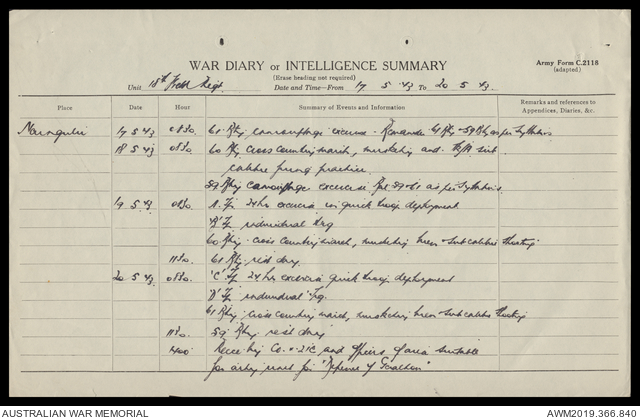 WAR DIARY or INTELLIGENCE SUMMARY
(Erase heading not required)
Army Form C.2118
(adapted)
Unit 18th Field Regt. Date and Time—From 17 5 43 To 20 5 43.
Place Date Hour Summary of Events and Information Remarks and references to Appendices, Diaries, &c.
17 5 43 0830 61 Bty camouflage exercise. Remainder 61 Bty & 59 Bty as per Syllabus
18 5 43 0830 60 Bty cross country march, and sub
calibre firing practice.
59 Bty camouflage exercise 59 & 61 as per Syllabus.
19 5 43 0830 'A' Tp 24 hr exercise in quick troop deployment
'B' Tp individual trg
60 Bty cross country march, musketry & sub calibre shooting
1130. 61 Bty rest day.
20 5 43 0830. 'C' Tp 24 hr exercise quick troop deployment
'D' Tp individual trg.
61 Bty cross country march, musketry & sub calibre shooting
1130. 59 Bty rest day
1400 Recce by C.O. & 2IC and officers of area suitable
for arty for "Defence of Geraldton"
AUSTRALIAN WAR MEMORIAL
AWM2019.366.840